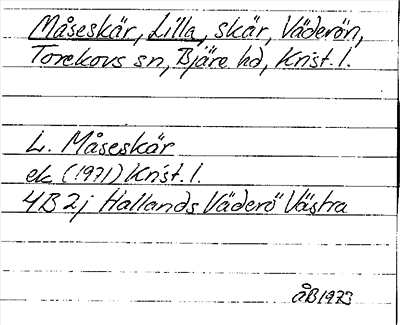 Måseskär, Lilla, skär, Väderön,
Torekovs sn, Bjäre hd, Krist. l.
L. Måseskär
ek (1971) Krist. l.
4B 2j Hallands Väderö Västra
ÅB 1973